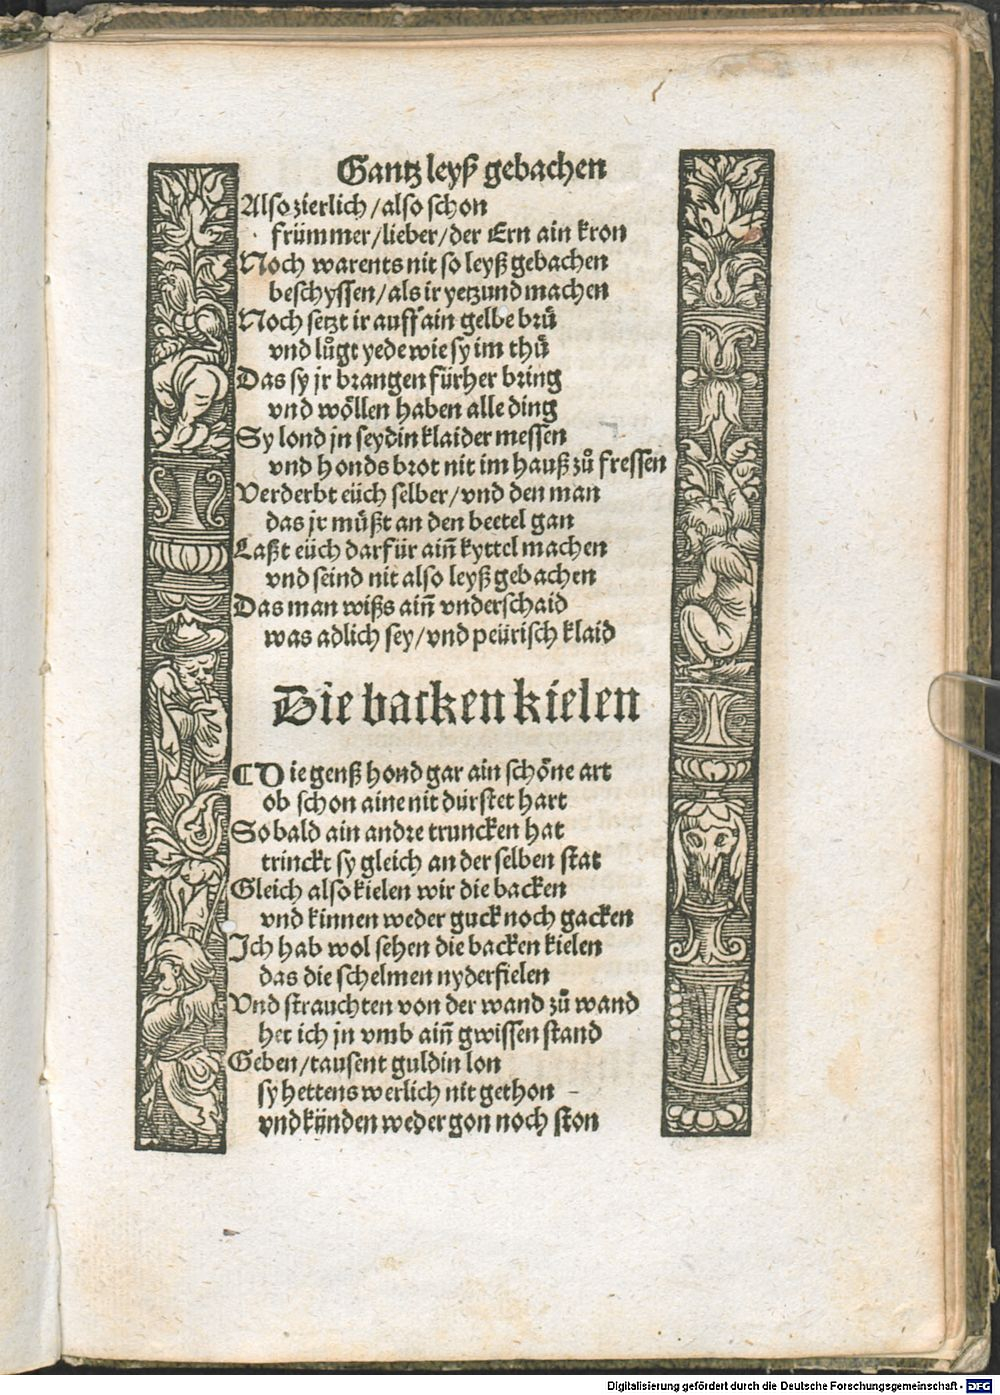 Gantz leyß gebachen
Also zierlich / also schon
frümmer / lieber / der Ern ain kron
Noch warents nit so leyß gebachen
beschyssen / als ir yetzund machen
Noch setzt ir auff ain gelbe brü
vnd lůgt yede wie sy im thü
Das sy jr brangen fürher bring
vnd wöllen haben alle ding
Sy lond jn seydin klaider messen
vnd honds brot nit im hauß zů fressen
Verderbt eüch selber / vnd den man
das jr müßt an den beetel gan
Laßt eüch darfür ain̄ kyttel machen
vnd seind nit also leyß gebachen
Das man wißs ain̄ vnderschaid
was adlich sey / vnd peürisch klaid
Die backen kielen
Die genß hond gar ain schöne art
ob schon aine nit dürstet hart
So bald ain andre truncken hat
trinckt sy gleich an der selben stat
Gleich also kielen wir die backen
vnd kinnen weder guck noch gacken
Ich hab wol sehen die backen kielen
das die schelmen nyderfielen
Vnd strauchten von der wand zů wand
het ich jn vmb ain̄ gwissen stand
Geben / tausent guldin lon
sy hettens werlich nit gethon
vnd künden weder gon noch ston
Digitalisierung gefördert durch die Deutsche Forschungsgemeinschaft - DFG